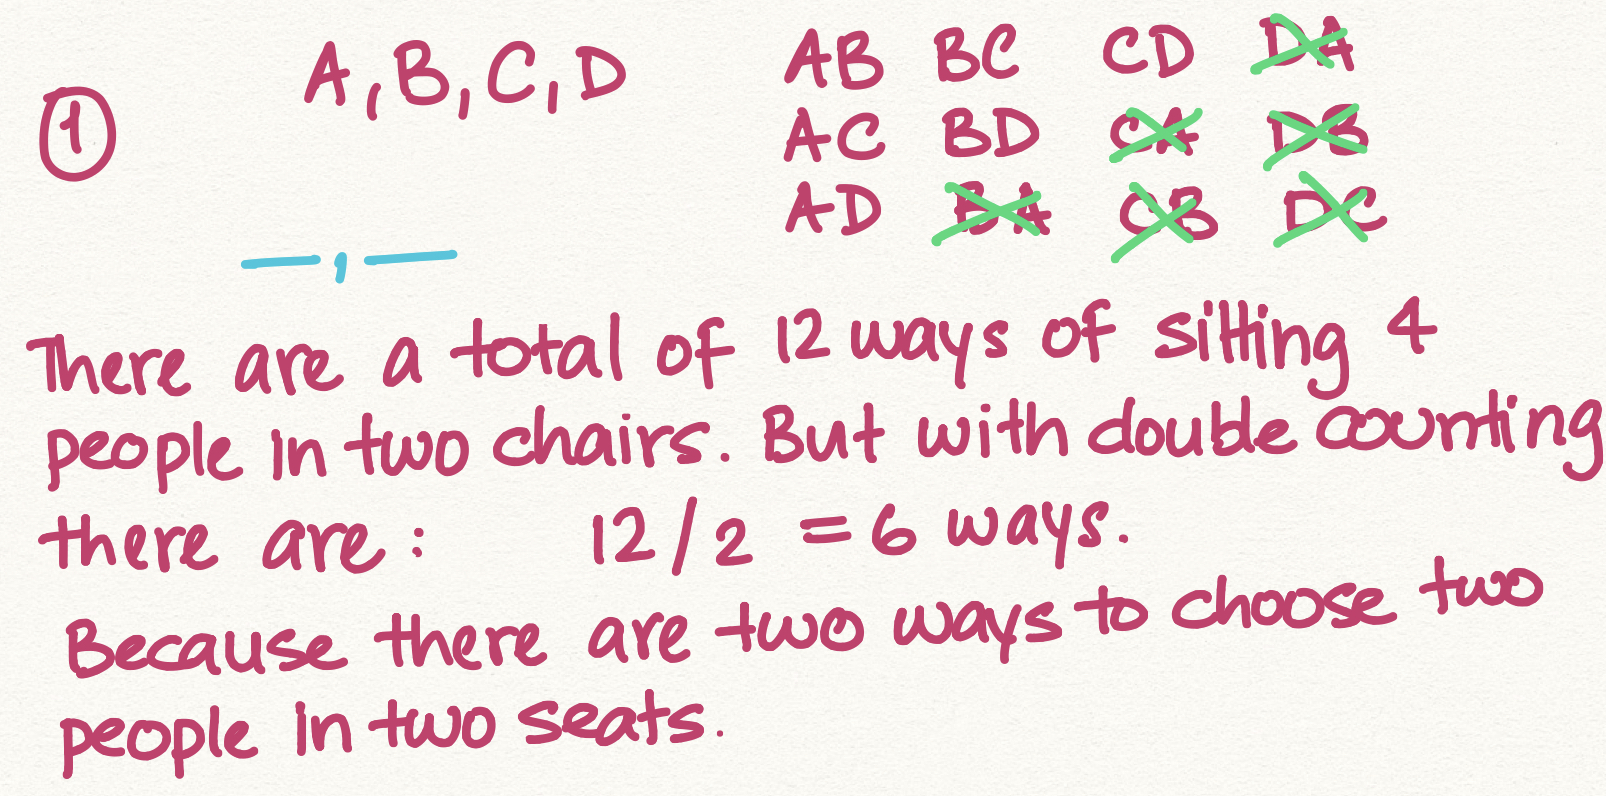 ①
A, B, C, D
AB BC CD DA
AC BD CA DB
AD BA CB DC
__, __
There are a total of 12 ways of sitting 4
people in two chairs. But with double counting
there are: 12/2 = 6 ways.
Because there are two ways to choose two
people in two seats.